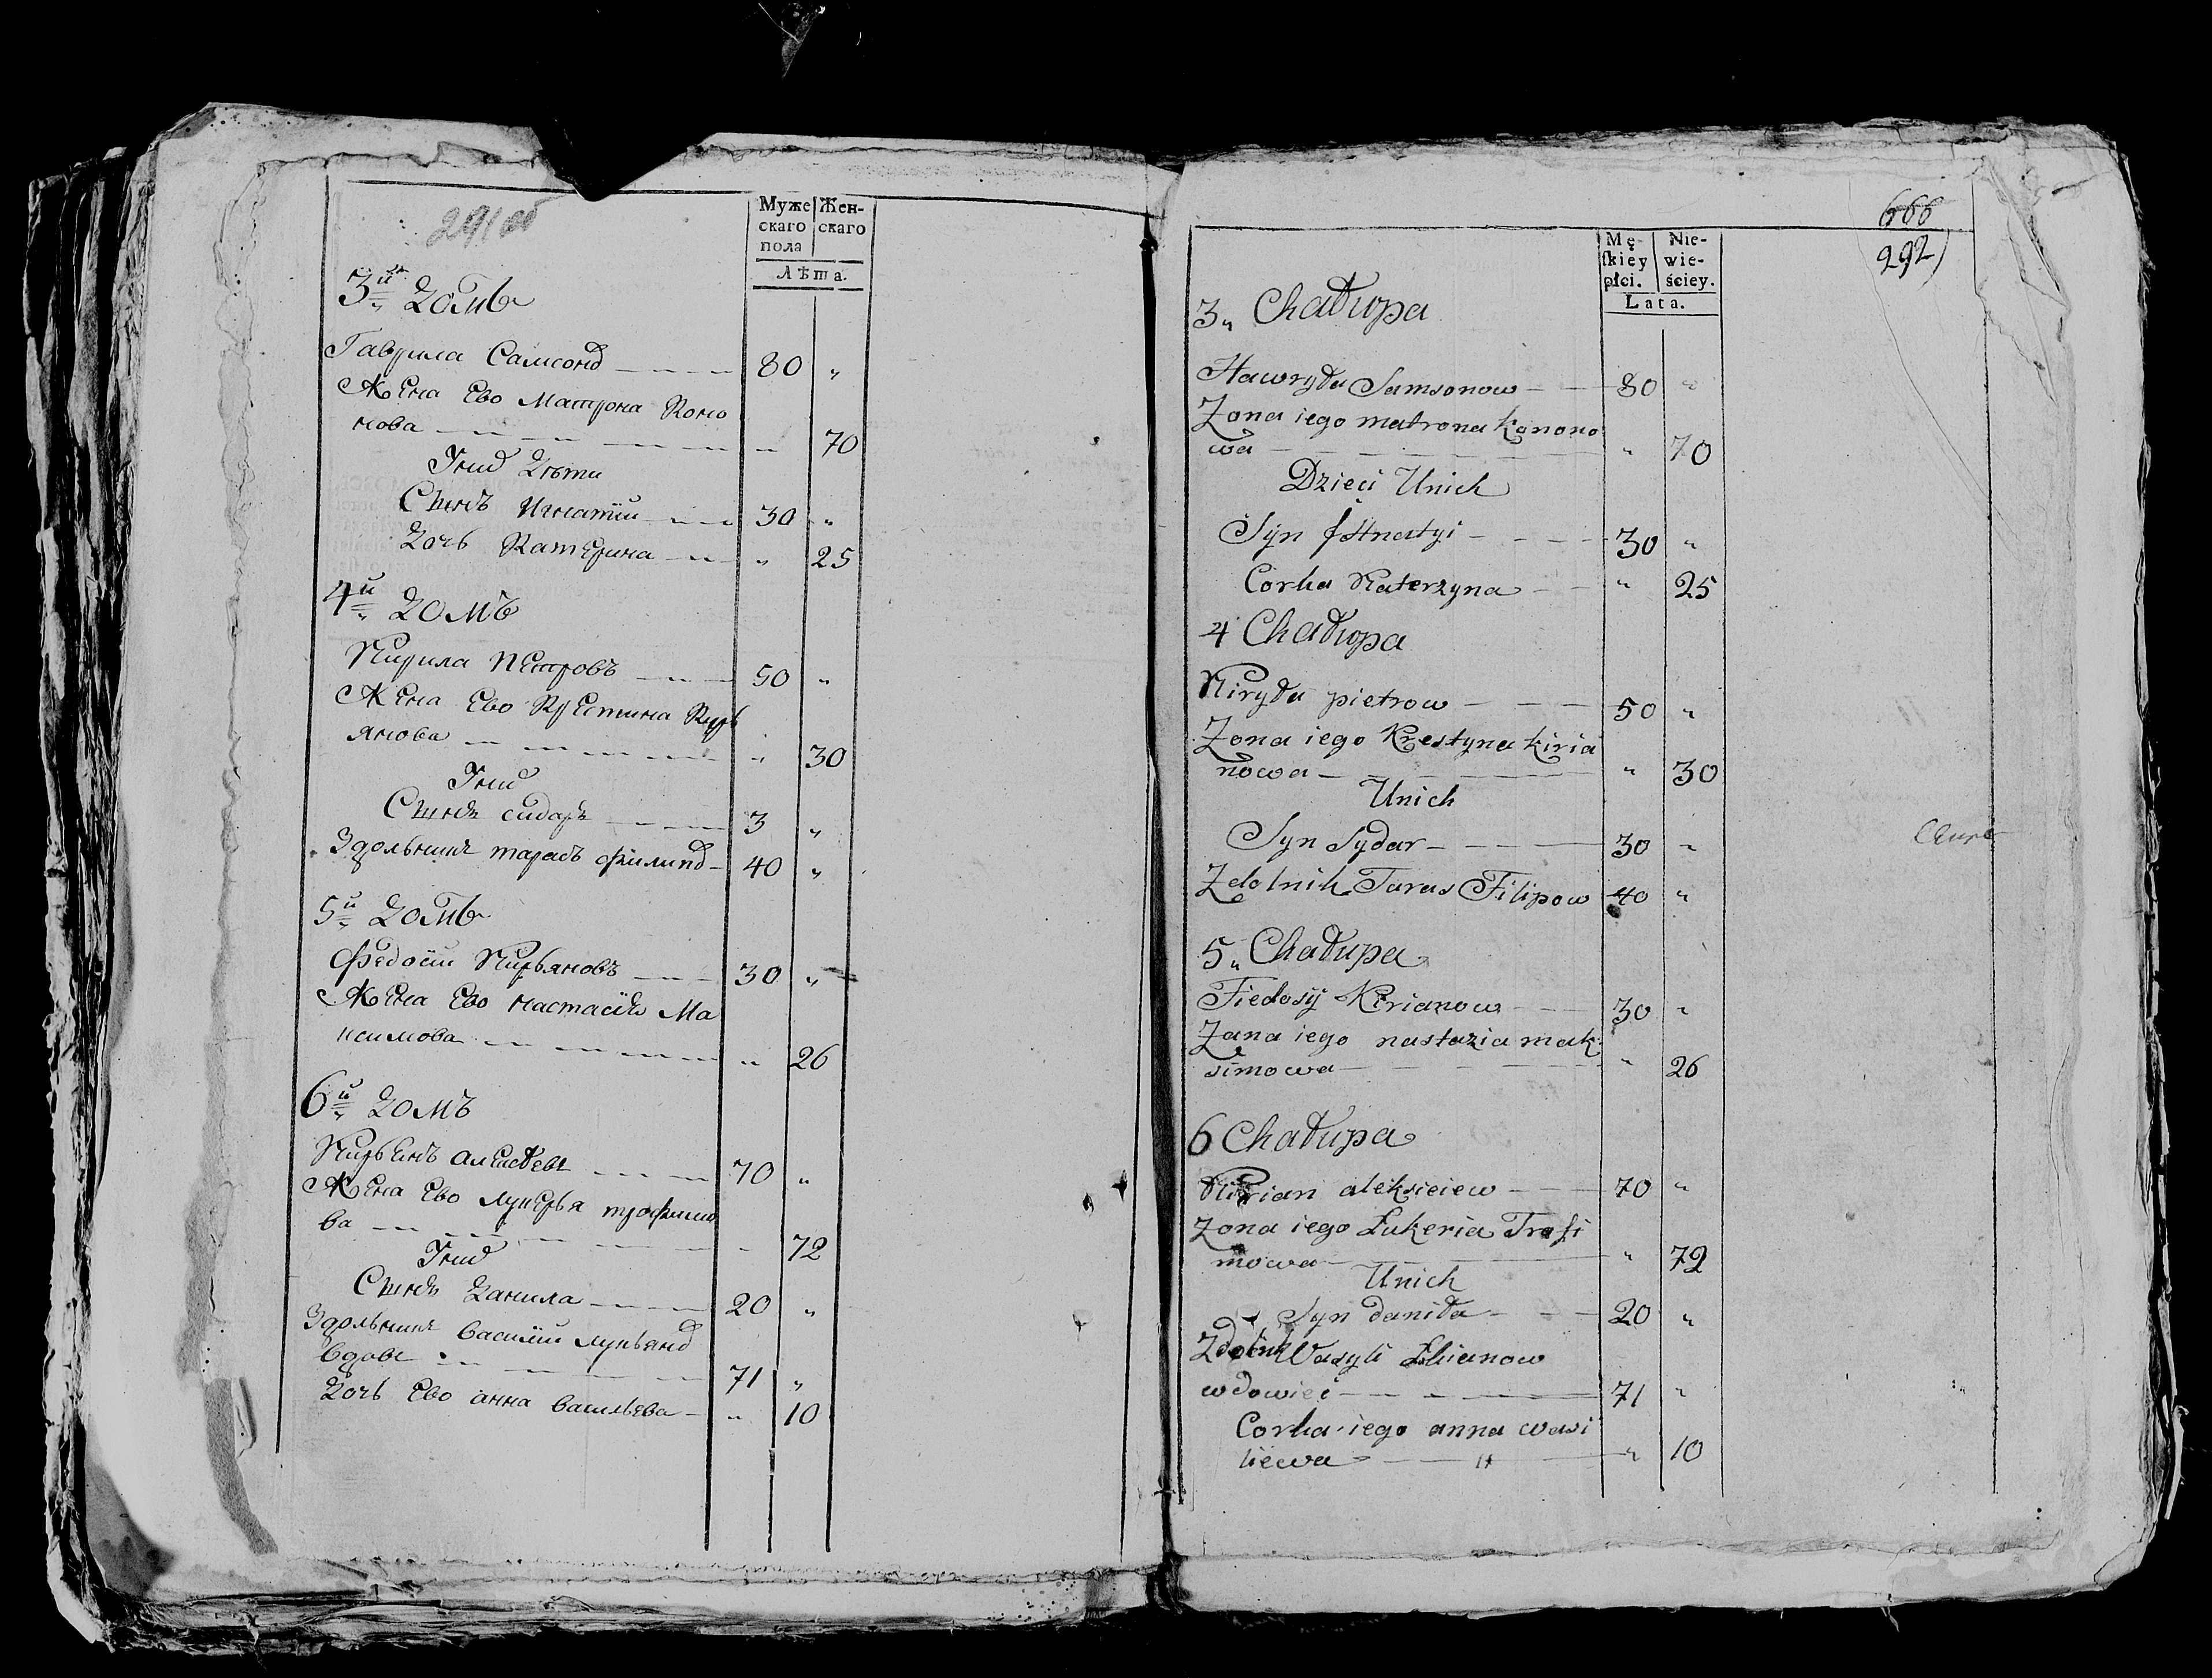 291 об
Муже
скаго
пола
Жен-
скаго
Лѣта.
3й домъ
Гаврила Самсонов 80 "
Жена Ево Матрона Коно
нова " 70
Унид дѣти
Сынъ Игнатїй 30 "
Дочь Катерина " 25
4й домъ
Кирила Петровъ 50 "
Жена Ево Крестина Кирь
янова " 30
Унид
Сынъ сидаръ 3 "
Здольникъ тарасъ филипов 40 "
5й домъ
Федосїй Кирьяновъ 30 "
Жена Ево настасїя Ма
ксимова " 26
6й домъ
Кирьянъ алексѣевъ 70 "
Жена Ево лукерья трофимо
ва " 72
Унид
Сынъ данила 20 "
Здольникъ василїй лукьянов
вдовъ 71 "
Дочь Ево анна васильева " 10
666
292
Mę-
skiey
płci.
Nie-
wie-
ściey.
Lata.
3„ Chałupa
Hawryła Samsonow 80 "
Zona iego matrona konono
wa " 70
Dzieci Unich
Syn Hnatyi 30 "
Corka Katerzyna " 25
4 Chałupa
Kiryła pietrow 50 "
Zona iego Krestyna kiria
nowa " 30
Unich
Syn Sydar 30 "
Zdolnik Taras Filipow 40 "
5„ Chałupa
Fiedosÿ Kirianow 30 "
Zana iego nastazia mak
simowa " 26
6 Chałupa
Kirian aleksieiew 70 "
Zona iego Łukeria Trofi
mowa " 72
Unich
Syn daniła 20 "
Zdolnik Wasyli Łkianow
wdowiec 71 "
Corka iego anna wasi
liewa " 10